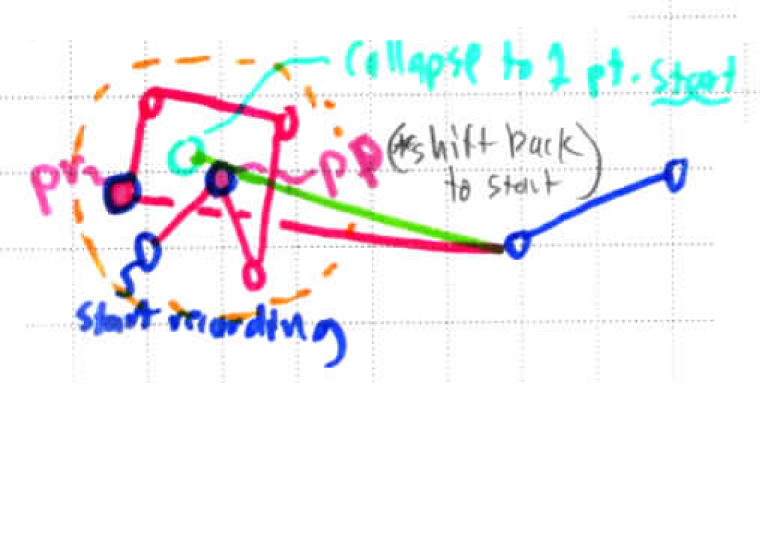 collapse to 1 pt. start
pr
pp
(*shift back
to start)
start recording